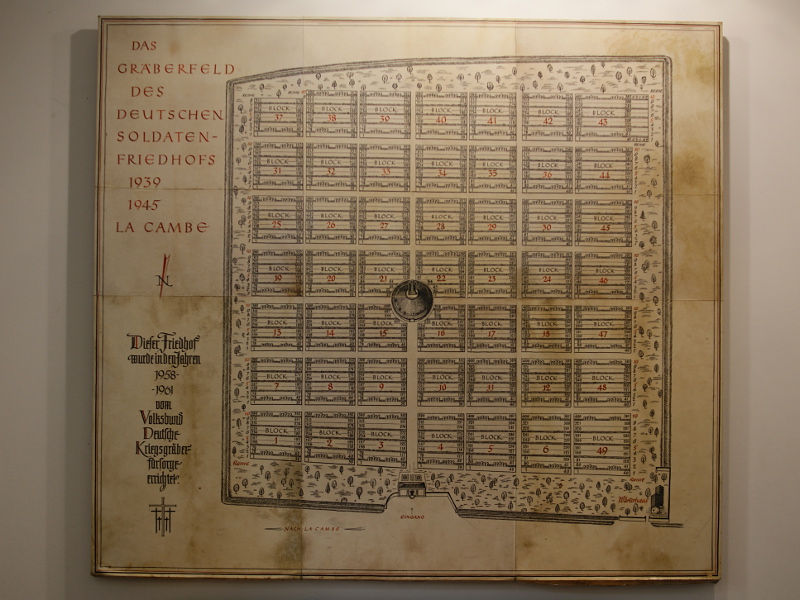 DAS
GRÄBERFELD
DES
DEUTSCHEN
SOLDATEN-
FRIEDHOFS
1939
1945
LA CAMBE
N
Dieser Friedhof
wurde in den Jahren
1958-
-1961
vom
Volksbund
Deutsche
Kriegsgräber-
fürsorge
errichtet.
BLOCK 37 BLOCK 38 BLOCK 39 BLOCK 40 BLOCK 41 BLOCK 42 BLOCK 43
BLOCK 31 BLOCK 32 BLOCK 33 BLOCK 34 BLOCK 35 BLOCK 36 BLOCK 44
BLOCK 25 BLOCK 26 BLOCK 27 BLOCK 28 BLOCK 29 BLOCK 30 BLOCK 45
BLOCK 19 BLOCK 20 BLOCK 21 BLOCK 22 BLOCK 23 BLOCK 24 BLOCK 46
BLOCK 13 BLOCK 14 BLOCK 15 BLOCK 16 BLOCK 17 BLOCK 18 BLOCK 47
BLOCK 7 BLOCK 8 BLOCK 9 BLOCK 10 BLOCK 11 BLOCK 12 BLOCK 48
BLOCK 1 BLOCK 2 BLOCK 3 BLOCK 4 BLOCK 5 BLOCK 6 BLOCK 49
REIHE
EINGANG
NACH LA CAMBE